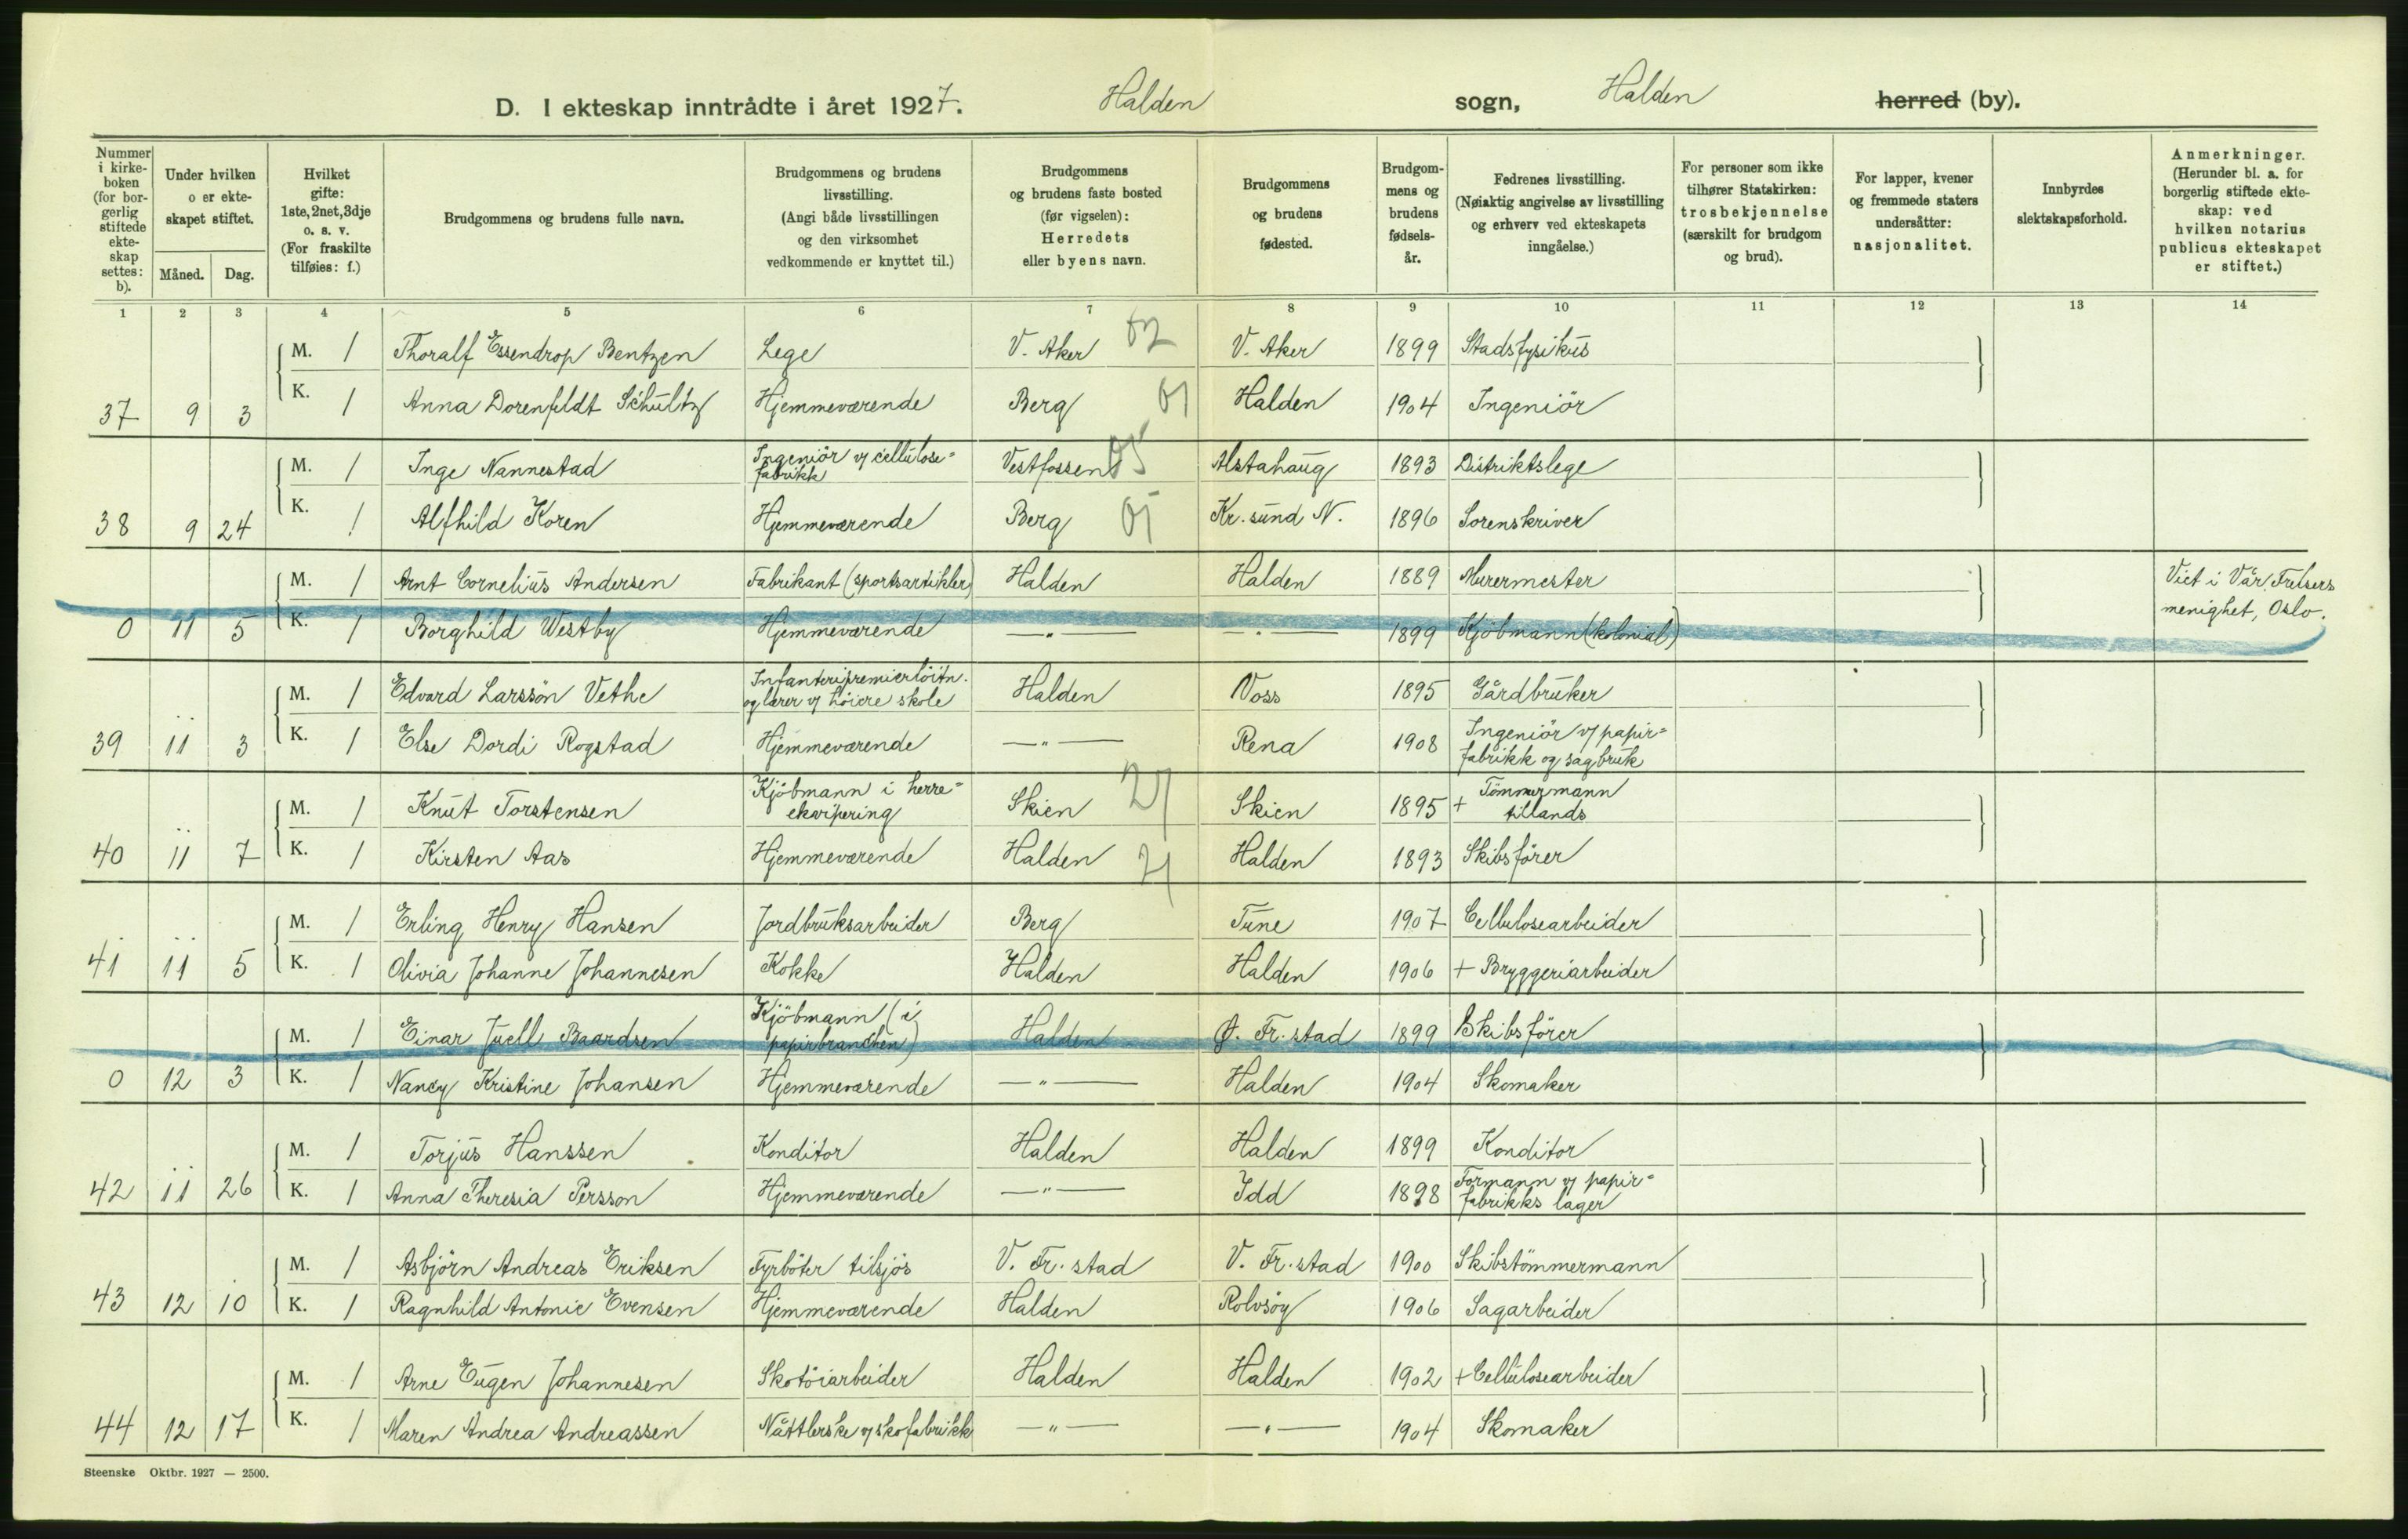 D. I ekteskap inntrådte i året 1927. Halden sogn, Halden herred (by).
Nummer i kirke-boken (for bor-gerlig stiftede ekte-skap settes: b).
Under hvilken o er ekte-skapet stiftet.
Måned. Dag.
Hvilket gifte: 1ste, 2net, 3dje o. s. v. (For fraskilte tilføies: f.)
Brudgommens og brudens fulle navn.
Brudgommens og brudens livsstilling. (Angi både livsstillingen og den virksomhet vedkommende er knyttet til.)
Brudgommens og brudens faste bosted (før vigselen): Herredets eller byens navn.
Brudgommens og brudens fødested.
Brudgom-mens og brudens fødsels-år.
Fedrenes livsstilling. (Nøiaktig angivelse av livsstilling og erhverv ved ekteskapets inngåelse.)
For personer som ikke tilhører Statskirken: trosbekjennelse (særskilt for brudgom og brud).
For lapper, kvener og fremmede staters undersåtter: nasjonalitet.
Innbyrdes slektskapsforhold.
Anmerkninger. (Herunder bl. a. for borgerlig stiftede ekte-skap: ved hvilken notarius publicus ekteskapet er stiftet.)
1 2 3 4 5 6 7 8 9 10 11 12 13 14
M. 1 Thoralf Essendrop Bentzen Lege V. Aker 02 V. Aker 1899 Stadsfysikus
37 9 3 K. 1 Anna Dorenfeldt Schultz Hjemmeværende Berg 01 Halden 1904 Ingeniör
M. 1 Inge Nannestad Ingeniör v/ cellulose= fabrikk Vestfossen 05 Alstahaug 1893 Distriktslege
38 9 24 K. 1 Alfhild Koren Hjemmeværende Berg 01 Kr. sund N. 1896 Sorenskriver
M. 1 Arnt Cornelius Andersen Fabrikant (sportsartikler) Halden Halden 1889 Murermester Viet i Vår Frelsers
0 11 5 K. 1 Borghild Westby Hjemmeværende —"— —"— 1899 Kjöbmann (kolonial) menighet, Oslo.
M. 1 Edvard Larssön Vethe Infanteripremierlöitn. og lærer v/ höiere skole Halden Voss 1895 Gårdbruker
39 11 3 K. 1 Else Dordi Rogstad Hjemmeværende —"— Rena 1908 Ingeniör v/ papir= fabrikk og sagbruk
M. 1 Knut Torstensen Kjöbmann i herre= ekvipering Skien 21 Skien 1895 + Tömmermann tillands
40 11 7 K. 1 Kirsten Aas Hjemmeværende Halden 21 Halden 1893 Skibsförer
M. 1 Erling Henry Hansen Jordbruksarbeider Berg Tune 1907 Cellulosearbeider
41 11 5 K. 1 Olivia Johanne Johannesen Kokke Halden Halden 1906 + Bryggeriarbeider
M. 1 Einar Juell Baardsen Kjöbmann (i papirbranchen) Halden Ø. Fr. stad 1899 Skibsförer
0 12 3 K. 1 Nancy Kristine Johansen Hjemmeværende —"— Halden 1904 Skomaker
M. 1 Torjus Hanssen Konditor Halden Halden 1899 Konditor
42 11 26 K. 1 Anna Theresia Persson Hjemmeværende —"— Idd 1898 Formann v/ papir= fabrikks lager
M. 1 Asbjörn Andreas Eriksen Fyrböter tilsjös V. Fr. stad V. Fr. stad 1900 Skibstömmermann
43 12 10 K. 1 Ragnhild Antonie Evensen Hjemmeværende Halden Rolvsöy 1906 Sagarbeider
M. 1 Arne Eugen Johannesen Skotöiarbeider Halden Halden 1902 + Cellulosearbeider
44 12 17 K. 1 Maren Andrea Andreassen Nåttlerske v/ skofabrikk —"— —"— 1904 Skomaker
Steenske Oktbr. 1927 — 2500.